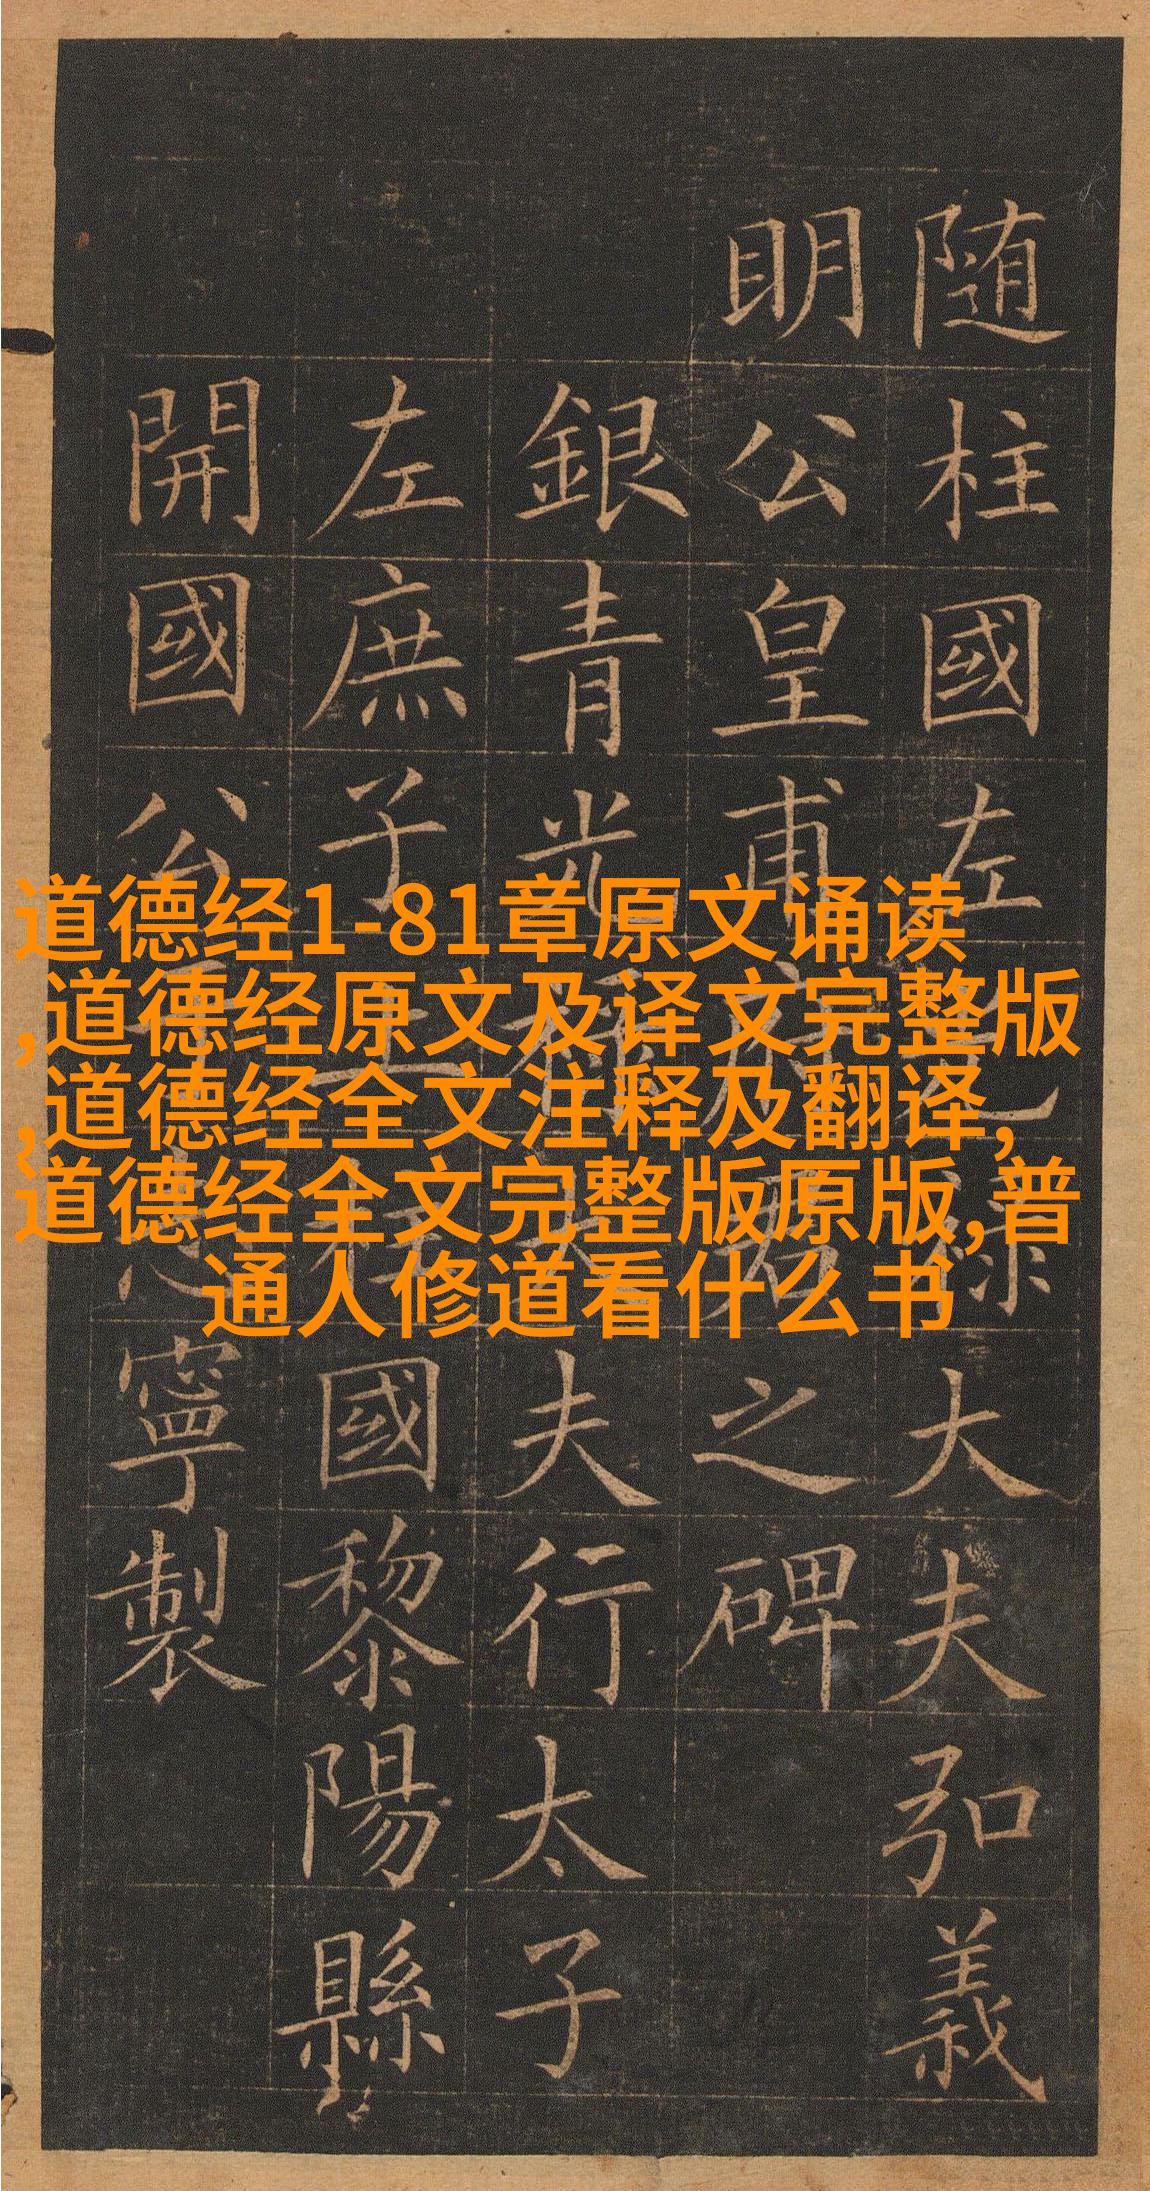 随柱國左光祿大夫弘義
明公皇甫府君之碑
銀青光祿大夫行太子
左庶子上柱國黎陽縣
開國公于志寧製
道德经1-81章原文诵读
,道德经原文及译文完整版
,道德经全文注释及翻译,
道德经全文完整版原版,普
通人修道看什么书